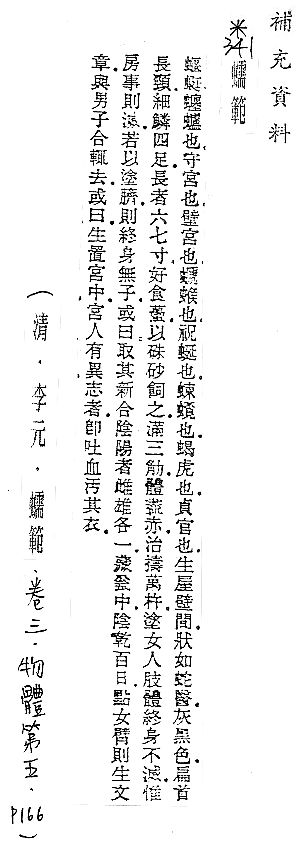 補充資料
米341 蠕範
蝘蜓蠦𧕅也守宮也壁宮也蠑螈也祝蜓也蝀螾也蝎虎也貞官也生屋壁間狀如蛇醫灰黑色扁首
長頸細鱗四足長者六七寸好食蠆以硃砂飼之滿三觔體盡赤治擣萬杵塗女人肢體終身不滅惟
房事則滅若以塗臍則終身無子或曰取其新合陰陽者雌雄各一藏瓮中陰乾百日點女臂則生文
章與男子合輒去或曰生置宮中宮人有異志者卽吐血汚其衣
(清．李元．蠕範．卷三．物體第五．P166)